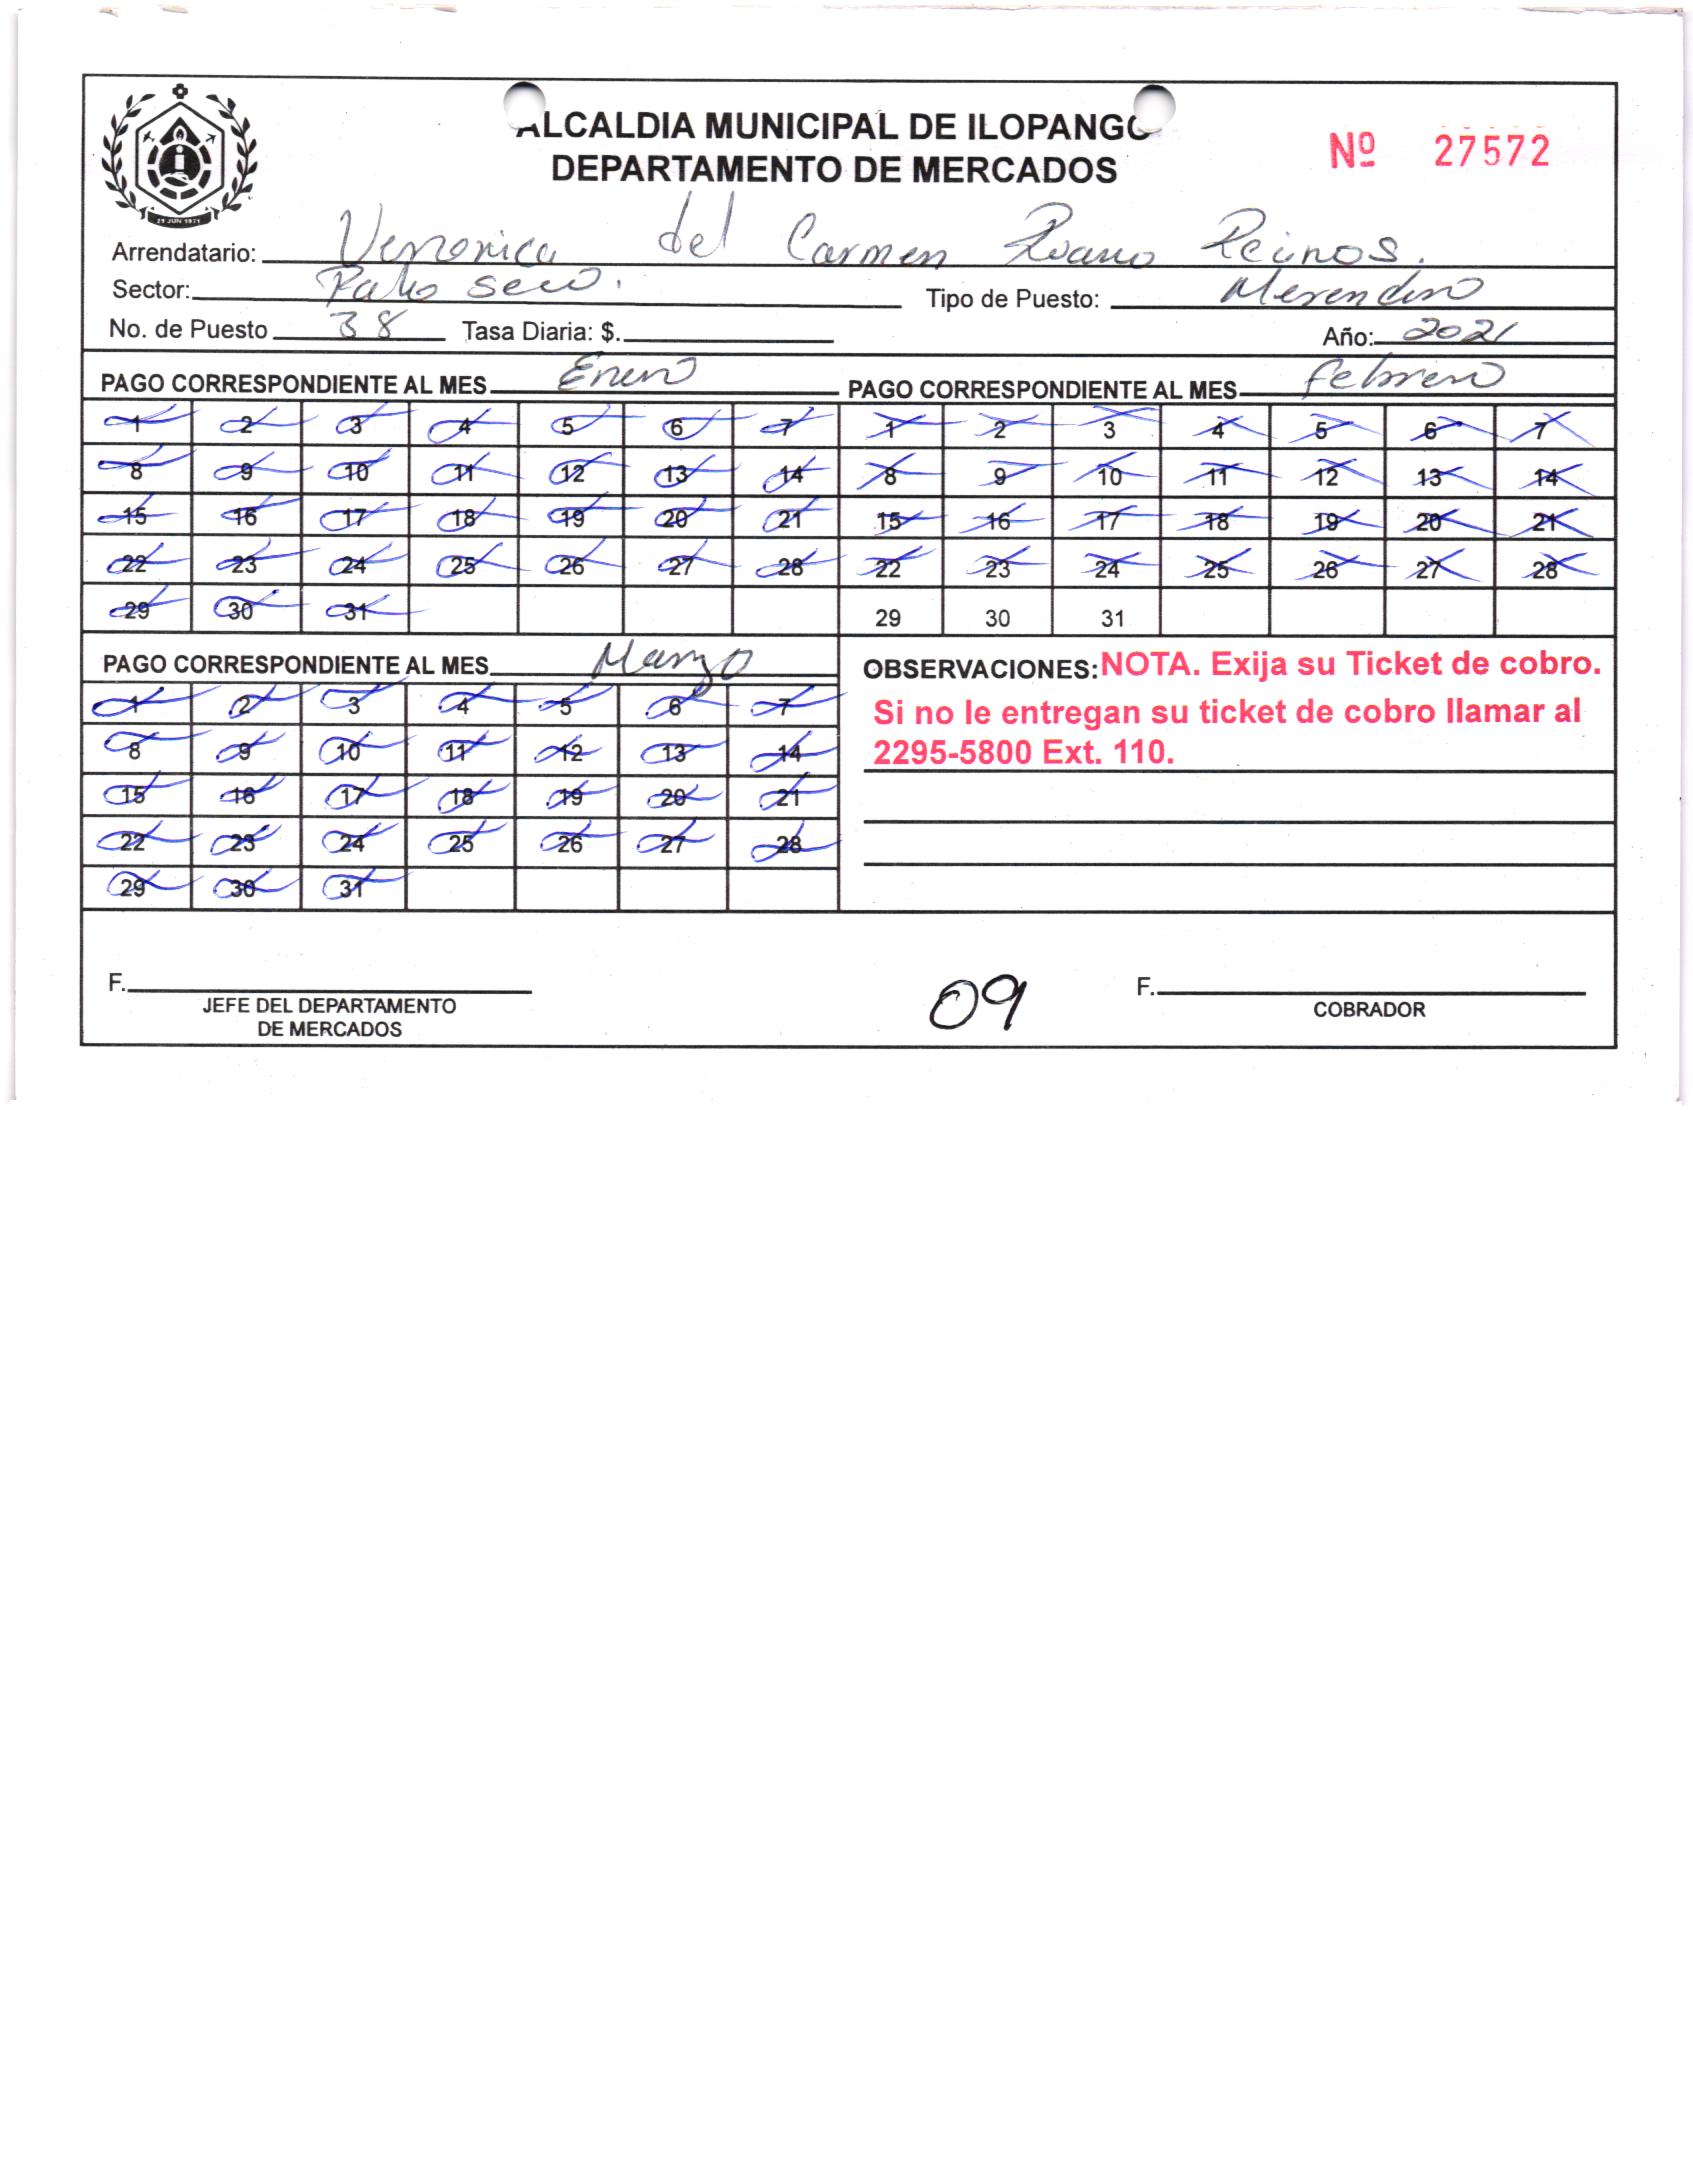 ALCALDIA MUNICIPAL DE ILOPANGO
DEPARTAMENTO DE MERCADOS
Nº 27572
29 JUN 1971
Arrendatario: Veronica del Carmen Reinos.
Sector: Patio seco.
Tipo de Puesto: Merendero
No. de Puesto 38 Tasa Diaria: $.
Año: 2021
PAGO CORRESPONDIENTE AL MES Enero
1 2 3 4 5 6 7
8 9 10 11 12 13 14
15 16 17 18 19 20 21
22 23 24 25 26 27 28
29 30 31
PAGO CORRESPONDIENTE AL MES febrero
1 2 3 4 5 6 7
8 9 10 11 12 13 14
15 16 17 18 19 20 21
22 23 24 25 26 27 28
29 30 31
PAGO CORRESPONDIENTE AL MES Marzo
1 2 3 4 5 6 7
8 9 10 11 12 13 14
15 16 17 18 19 20 21
22 23 24 25 26 27 28
29 30 31
OBSERVACIONES: NOTA. Exija su Ticket de cobro.
Si no le entregan su ticket de cobro llamar al
2295-5800 Ext. 110.
F.
JEFE DEL DEPARTAMENTO
DE MERCADOS
09
F.
COBRADOR